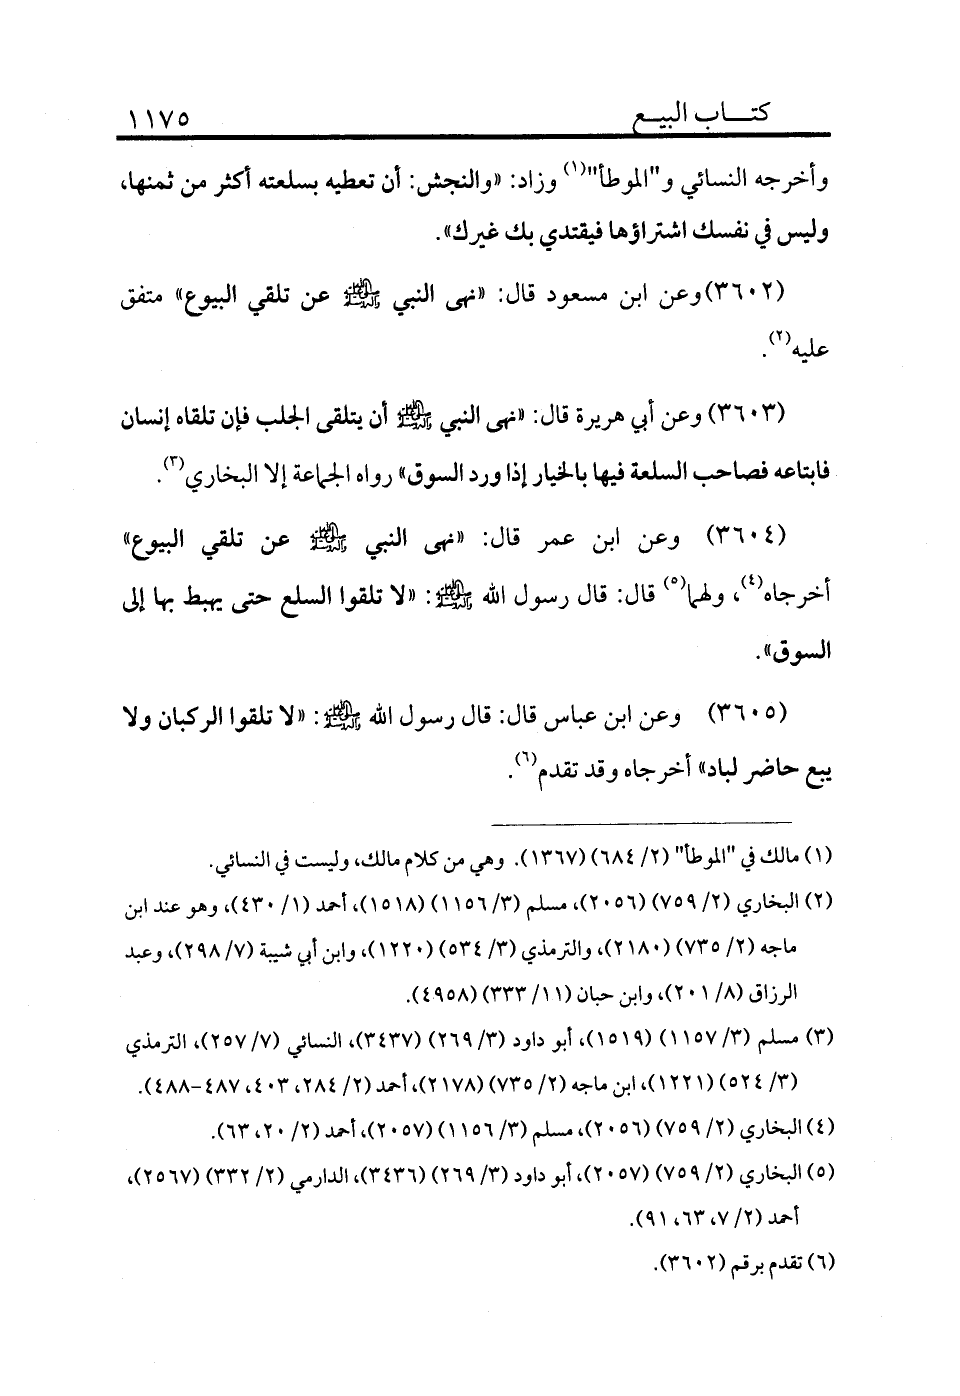 كتـــاب البيـــع ١١٧٥
وأخرجه النسائي و"الموطأ"(١) وزاد: «والنجش: أن تعطيه بسلعته أكثر من ثمنها،
وليس في نفسك اشتراؤها فيقتدي بك غيرك».
(٣٦٠٢)وعن ابن مسعود قال: «نهى النبي ﷺ عن تلقي البيوع» متفق
عليه(٢).
(٣٦٠٣) وعن أبي هريرة قال: «نهى النبي ﷺ أن يتلقى الجلب فإن تلقاه إنسان
فابتاعه فصاحب السلعة فيها بالخيار إذا ورد السوق» رواه الجماعة إلا البخاري(٣).
(٣٦٠٤) وعن ابن عمر قال: «نهى النبي ﷺ عن تلقي البيوع»
أخرجاه(٤)، ولهما(٥) قال: قال رسول الله ﷺ: «لا تلقوا السلع حتى يهبط بها إلى
السوق».
(٣٦٠٥) وعن ابن عباس قال: قال رسول الله ﷺ: «لا تلقوا الركبان ولا
يبع حاضر لباد» أخرجاه وقد تقدم(٦).
(١) مالك في "الموطأ" (٢/ ٦٨٤) (١٣٦٧). وهي من كلام مالك، وليست في النسائي.
(٢) البخاري (٢/ ٧٥٩) (٢٠٥٦)، مسلم (٣/ ١١٥٦) (١٥١٨)، أحمد (١/ ٤٣٠)، وهو عند ابن
ماجه (٢/ ٧٣٥) (٢١٨٠)، والترمذي (٣/ ٥٣٤) (١٢٢٠)، وابن أبي شيبة (٧/ ٢٩٨)، وعبد
الرزاق (٨/ ٢٠١)، وابن حبان (١١/ ٣٣٣) (٤٩٥٨).
(٣) مسلم (٣/ ١١٥٧) (١٥١٩)، أبو داود (٣/ ٢٦٩) (٣٤٣٧)، النسائي (٧/ ٢٥٧)، الترمذي
(٣/ ٥٢٤) (١٢٢١)، ابن ماجه (٢/ ٧٣٥) (٢١٧٨)، أحمد (٢/ ٢٨٤، ٤٠٣، ٤٨٧-٤٨٨).
(٤) البخاري (٢/ ٧٥٩) (٢٠٥٦)، مسلم (٣/ ١١٥٦) (٢٠٥٧)، أحمد (٢/ ٢٠، ٦٣).
(٥) البخاري (٢/ ٧٥٩) (٢٠٥٧)، أبو داود (٣/ ٢٦٩) (٣٤٣٦)، الدارمي (٢/ ٣٣٢) (٢٥٦٧)،
أحمد (٢/ ٧، ٦٣، ٩١).
(٦) تقدم برقم (٣٦٠٢).